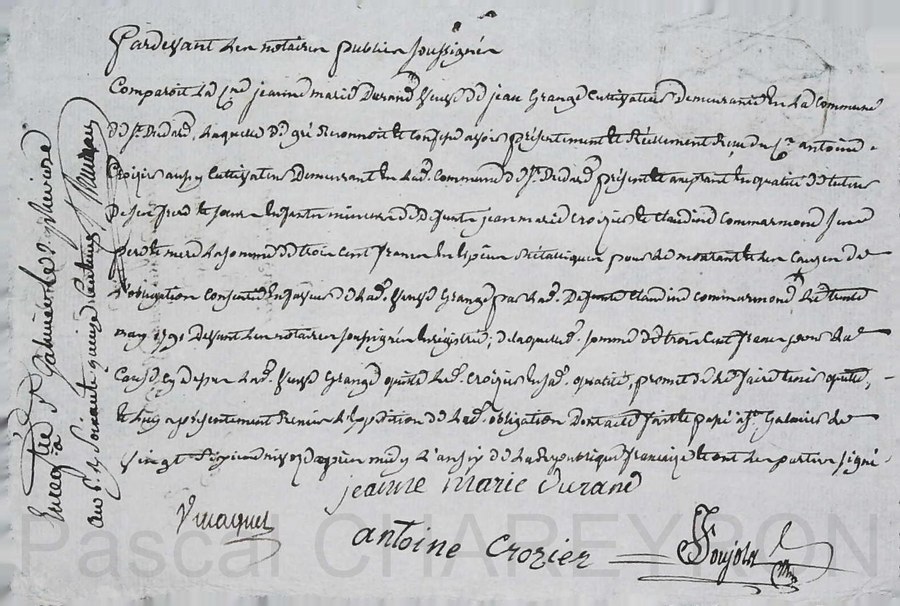 Pardevant les notaires publics soussignés
Comparoit la Cne jeanne marie Durand veuve de jean Grange Cultivateur demeurante en la Commune
de St. Didard, laquelle de gré Reconnoit et Confesse avoir présentement et Réellement Reçu du Cn. antoine
Crozier aussy Cultivateur Demeurant en lad. Commune de St. Didard présent et acceptant en qualité de tuteur
de ses frere et soeur enfants mineurs de defunts jean marie Crozier et Claudine Commarmond leurs
pere et mere la somme de trois cent francs en Espèces métalliques pour le montant et les causes de
L'obligation Consentie En faveur de lad. veuve Grange par lad. Defunte Claudine Commarmond le trente
may 1790 devant les notaires soussignés Enregistrée; de laquelle somme de trois Cent francs pour la
Cause cy dessus lad. veuve Grange quitte led. Crozier en sad. qualité, promet de le faire tenir quitte,
et luy a présentement Remis l'expédition de lad. obligation Dont acte fait et passé à St. Galmier le
vingt après midy L'an six de la République française et ont les parties signé
jeanne marie durand
antoine Crozier
Enregistré à St. Galmier le
an 6. R. soixante quinze Centimes
Pascal CHAREYRON